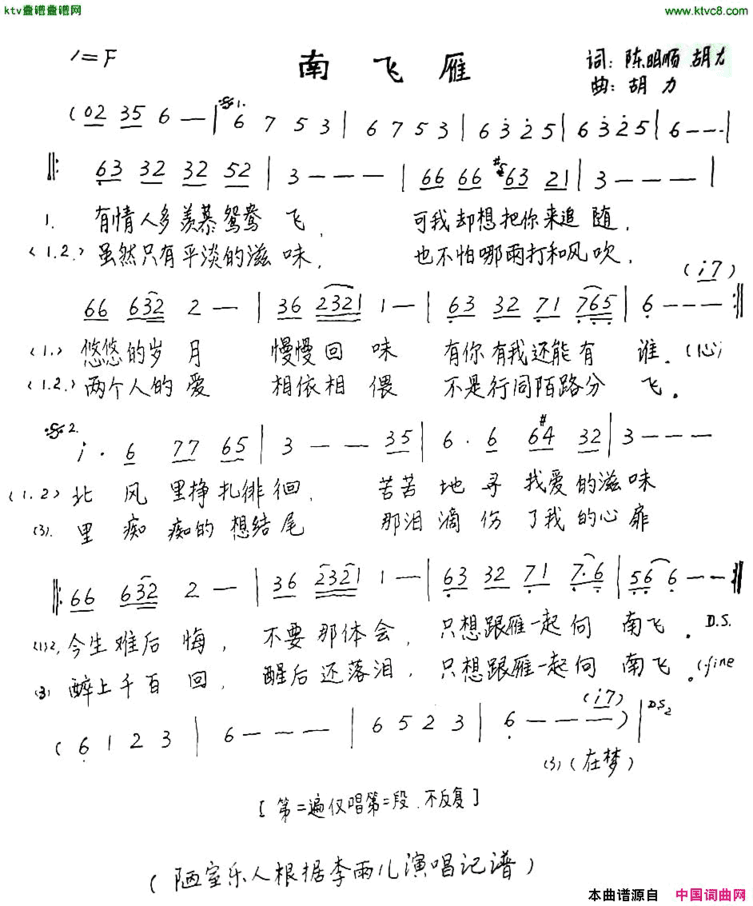 ktv查谱查谱网 www.ktvc8.com
1=F 南飞雁 词：陈明顺 胡力
曲：胡力
(02 35 6 — | 𝄋1. 6 7 5 3 | 6 7 5 3 | 6 3 2 5 | 6 3 2 5 | 6 - - - |
‖: 63 32 32 52 | 3 - - - | 66 66 #63 21 | 3 - - - |
1. 有情人多羡慕鸳鸯飞， 可我却想把你来追随，
(1.2.) 虽然只有平淡的滋味， 也不怕哪雨打和风吹，
(i7)
66 632 2 — | 36 2321 1 — | 63 32 71 765 | 6 - - - :‖
(1.) 悠悠的岁月 慢慢回味 有你有我还能有谁．(心)
(1.2.) 两个人的爱 相依相偎 不是行同陌路分飞．
𝄋2. i· 6 77 65 | 3 — — 35 | 6· 6 6#4 32 | 3 - - -
(1.2) 北风里挣扎徘徊， 苦苦地寻我爱的滋味
(3). 里痴痴的想结尾 那泪滴伤了我的心扉
‖: 66 632 2 — | 36 2321 1 — | 63 32 71 7·6 | 56 6 - - :‖
(1)2, 今生难后悔， 不要那体会， 只想跟雁一起向南飞． D.S.
(3) 醉上千百回， 醒后还落泪， 只想跟雁一起向南飞。(fine
(i7)
( 6 1 2 3 | 6 - - - | 6 5 2 3 | 6 - - — ) | D.S2
(3) (在梦)
[第二遍仅唱第二段．不反复]
(陋室乐人根据李雨儿演唱记谱)
本曲谱源自 中国词曲网